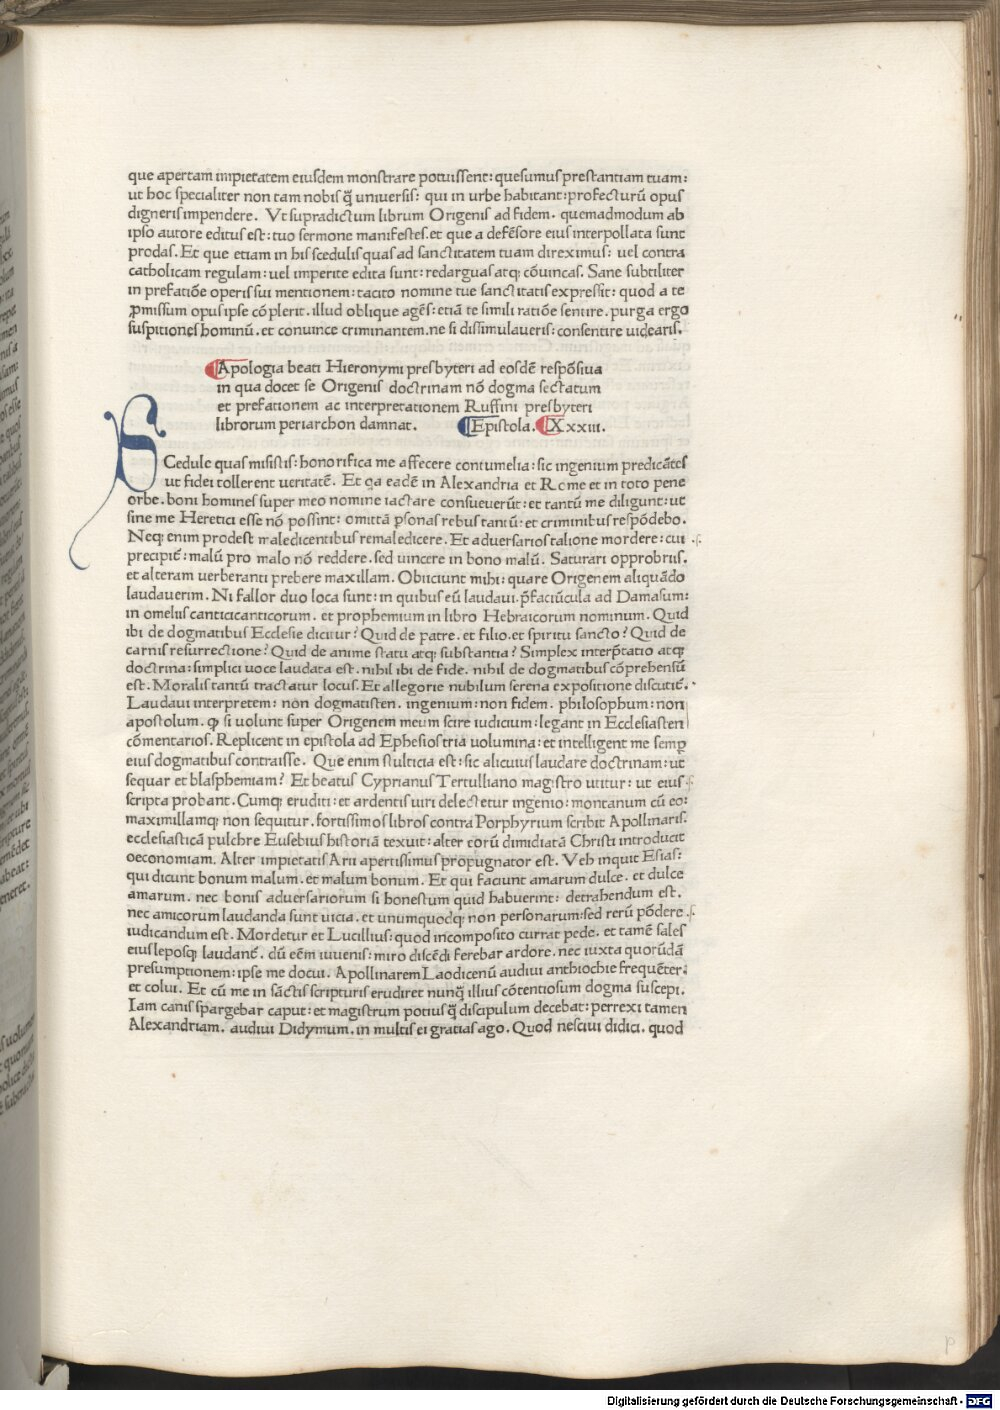 que apertam impietatem eiusdem monstrare potuissent: quesumus prestantiam tuam:
ut hoc specialiter non tam nobis q̃ universis: qui in urbe habitant: profecturũ opus
digneris impendere. Vt supradictum librum Origenis ad fidem. quemadmodum ab
ipso autore editus est: tuo sermone manifestes. et que a defẽsore eius interpollata sunt
prodas. Et que etiam in his scedulis quas ad sanctitatem tuam direximus: uel contra
catholicam regulam: uel imperite edita sunt: redarguas atq; cõuincas. Sane subtiliter
in prefatiõe operis sui mentionem: tacito nomine tue sanctitatis expressit: quod a te
ꝓmissum opus ipse cõplerit. illud oblique agẽs: etiã te simili ratiõe sentire. purga ergo
suspitiones hominũ. et conuince criminantem. ne si dissimulaueris: consentire uidearis.
Apologia beati Hieronymi presbyteri ad eosdẽ respõsiua
in qua docet se Origenis doctrinam nõ dogma sectatum
et prefationem ac interpretationem Ruffini presbyteri
librorum periarchon damnat. Epistola. Xxxiii.
SCedule quas misistis: honorifica me affecere contumelia: sic ingenium predicãtes
ut fidei tollerent ueritatẽ. Et qa eadẽ in Alexandria et Rome et in toto pene
orbe. boni homines super meo nomine iactare consueuerũt: et tantũ me diligunt: ut
sine me Heretici esse nõ possint: omittã ꝑsonas rebus tantũ: et criminibus respõdebo.
Neq; enim prodest maledicentibus remaledicere. Et aduersarios talione mordere: cui
precipit̃: malũ pro malo nõ reddere. sed uincere in bono malũ. Saturari opprobriis.
et alteram uerberanti prebere maxillam. Obiiciunt mihi: quare Origenem aliquãdo
laudauerim. Ni fallor duo loca sunt: in quibus eũ laudaui. p̃faciũcula ad Damasum:
in omelus canticicanticorum. et prophemium in libro Hebraicorum nominum. Quid
ibi de dogmatibus Ecclesie dicitur? Quid de patre. et filio. et spiritu sancto? Quid de
carnis resurrectione? Quid de anime statu atq; substantia? Simplex interp̃tatio atq;
doctrina: simplici uoce laudata est. nihil ibi de fide. nihil de dogmatibus cõprehensũ
est. Moralis tantũ tractatur locus. Et allegorie nubilum serena expositione discutit̃.
Laudaui interpretem: non dogmatisten. ingenium: non fidem. philosophum: non
apostolum. ꝙ si uolunt super Origenem meum scire iudicium: legant in Ecclesiasten
cõmentarios. Replicent in epistola ad Ephesios tria uolumina: et intelligent me semꝑ
eius dogmatibus contraisse. Que enim stulticia est: sic alicuius laudare doctrinam: ut
sequar et blasphemiam? Et beatus Cyprianus Tertulliano magistro utitur: ut eius
scripta probant. Cumq; eruditi: et ardentis uiri delectetur ingenio: montanum cũ eo:
maximillamq; non sequitur. fortissimos libros contra Porphyrium scribit Apollinaris.
ecclesiasticã pulchre Eusebius historiã texuit: alter eorũ dimidiatã Christi introducit
oeconomiam. Alter impietatis Arii apertissimus propugnator est. Veh inquit Esias:
qui dicunt bonum malum. et malum bonum. Et qui faciunt amarum dulce. et dulce
amarum. nec bonis aduersariorum si honestum quid habuerint: detrahendum est.
nec amicorum laudanda sunt uicia. et unumquodq; non personarum: sed rerũ põdere
iudicandum est. Mordetur et Lucillius: quod incomposito currat pede. et tamẽ sales
eius leposq; laudant̃. dũ eẽm iuuenis: miro discẽdi ferebar ardore. nec iuxta quorũdã
presumptionem: ipse me docui. Apollinarem Laodicenũ audiui anthiochie frequẽter:
et colui. Et cũ me in sãctis scripturis erudiret nunq̃ illius cõtentiosum dogma suscepi.
Iam canis spargebar caput: et magistrum potius q̃ discipulum decebat: perrexi tamen
Alexandriam. audiui Didymum. in multis ei gratias ago. Quod nesciui didici. quod
Digitalisierung gefördert durch die Deutsche Forschungsgemeinschaft - DFG